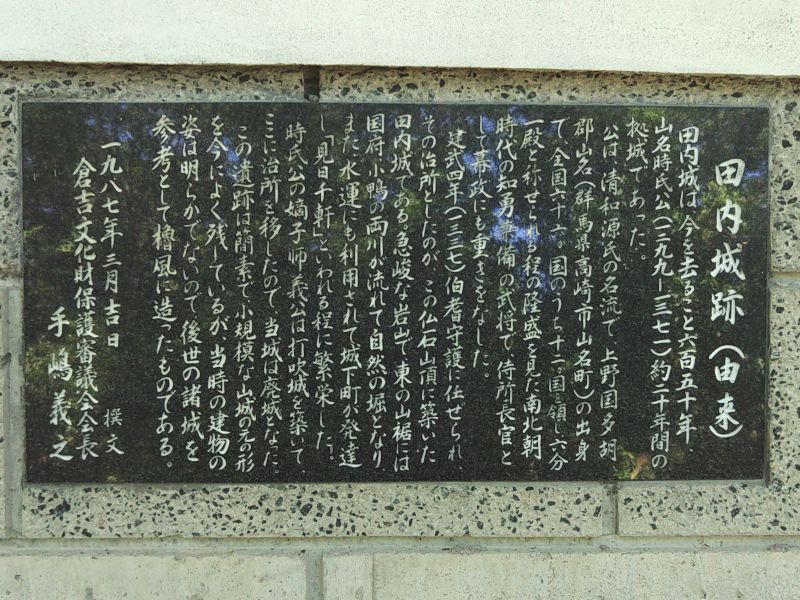 田内城跡（由来）
田内城は、今を去ること六百五十年、
山名時氏公（一二九九―一三七一）約二十年間の
拠城であった。
公は、清和源氏の名流で、上野国多胡
郡山名（群馬県高崎市山名町）の出身
で、全国六十六ヶ国のうち十二国を領し「六分
一殿」と称せられる程の隆盛を見た南北朝
時代の知勇兼備の武将で、侍所長官と
して幕政にも重きをなした。
建武四年（一三三七）伯耆守護に任ぜられ、
その治所としたのが、この仏石山頂に築いた
田内城である。急峻な岩山で東の山裾には
国府、小鴨の両川が流れて自然の堀となり
また、水運にも利用されて城下町が発達
し「見日千軒」といわれる程に繁栄した。
時氏公の嫡子師義公は打吹城を築いて
ここに治所を移したので、当城は廃城となった。
この遺跡は簡素で小規模な山城の元の形
を今によく残しているが、当時の建物の
姿は明らかでないので、後世の諸城を
参考として櫓風に造ったものである。
一九八七年三月吉日　撰文
倉吉文化財保護審議会会長
手嶋義之